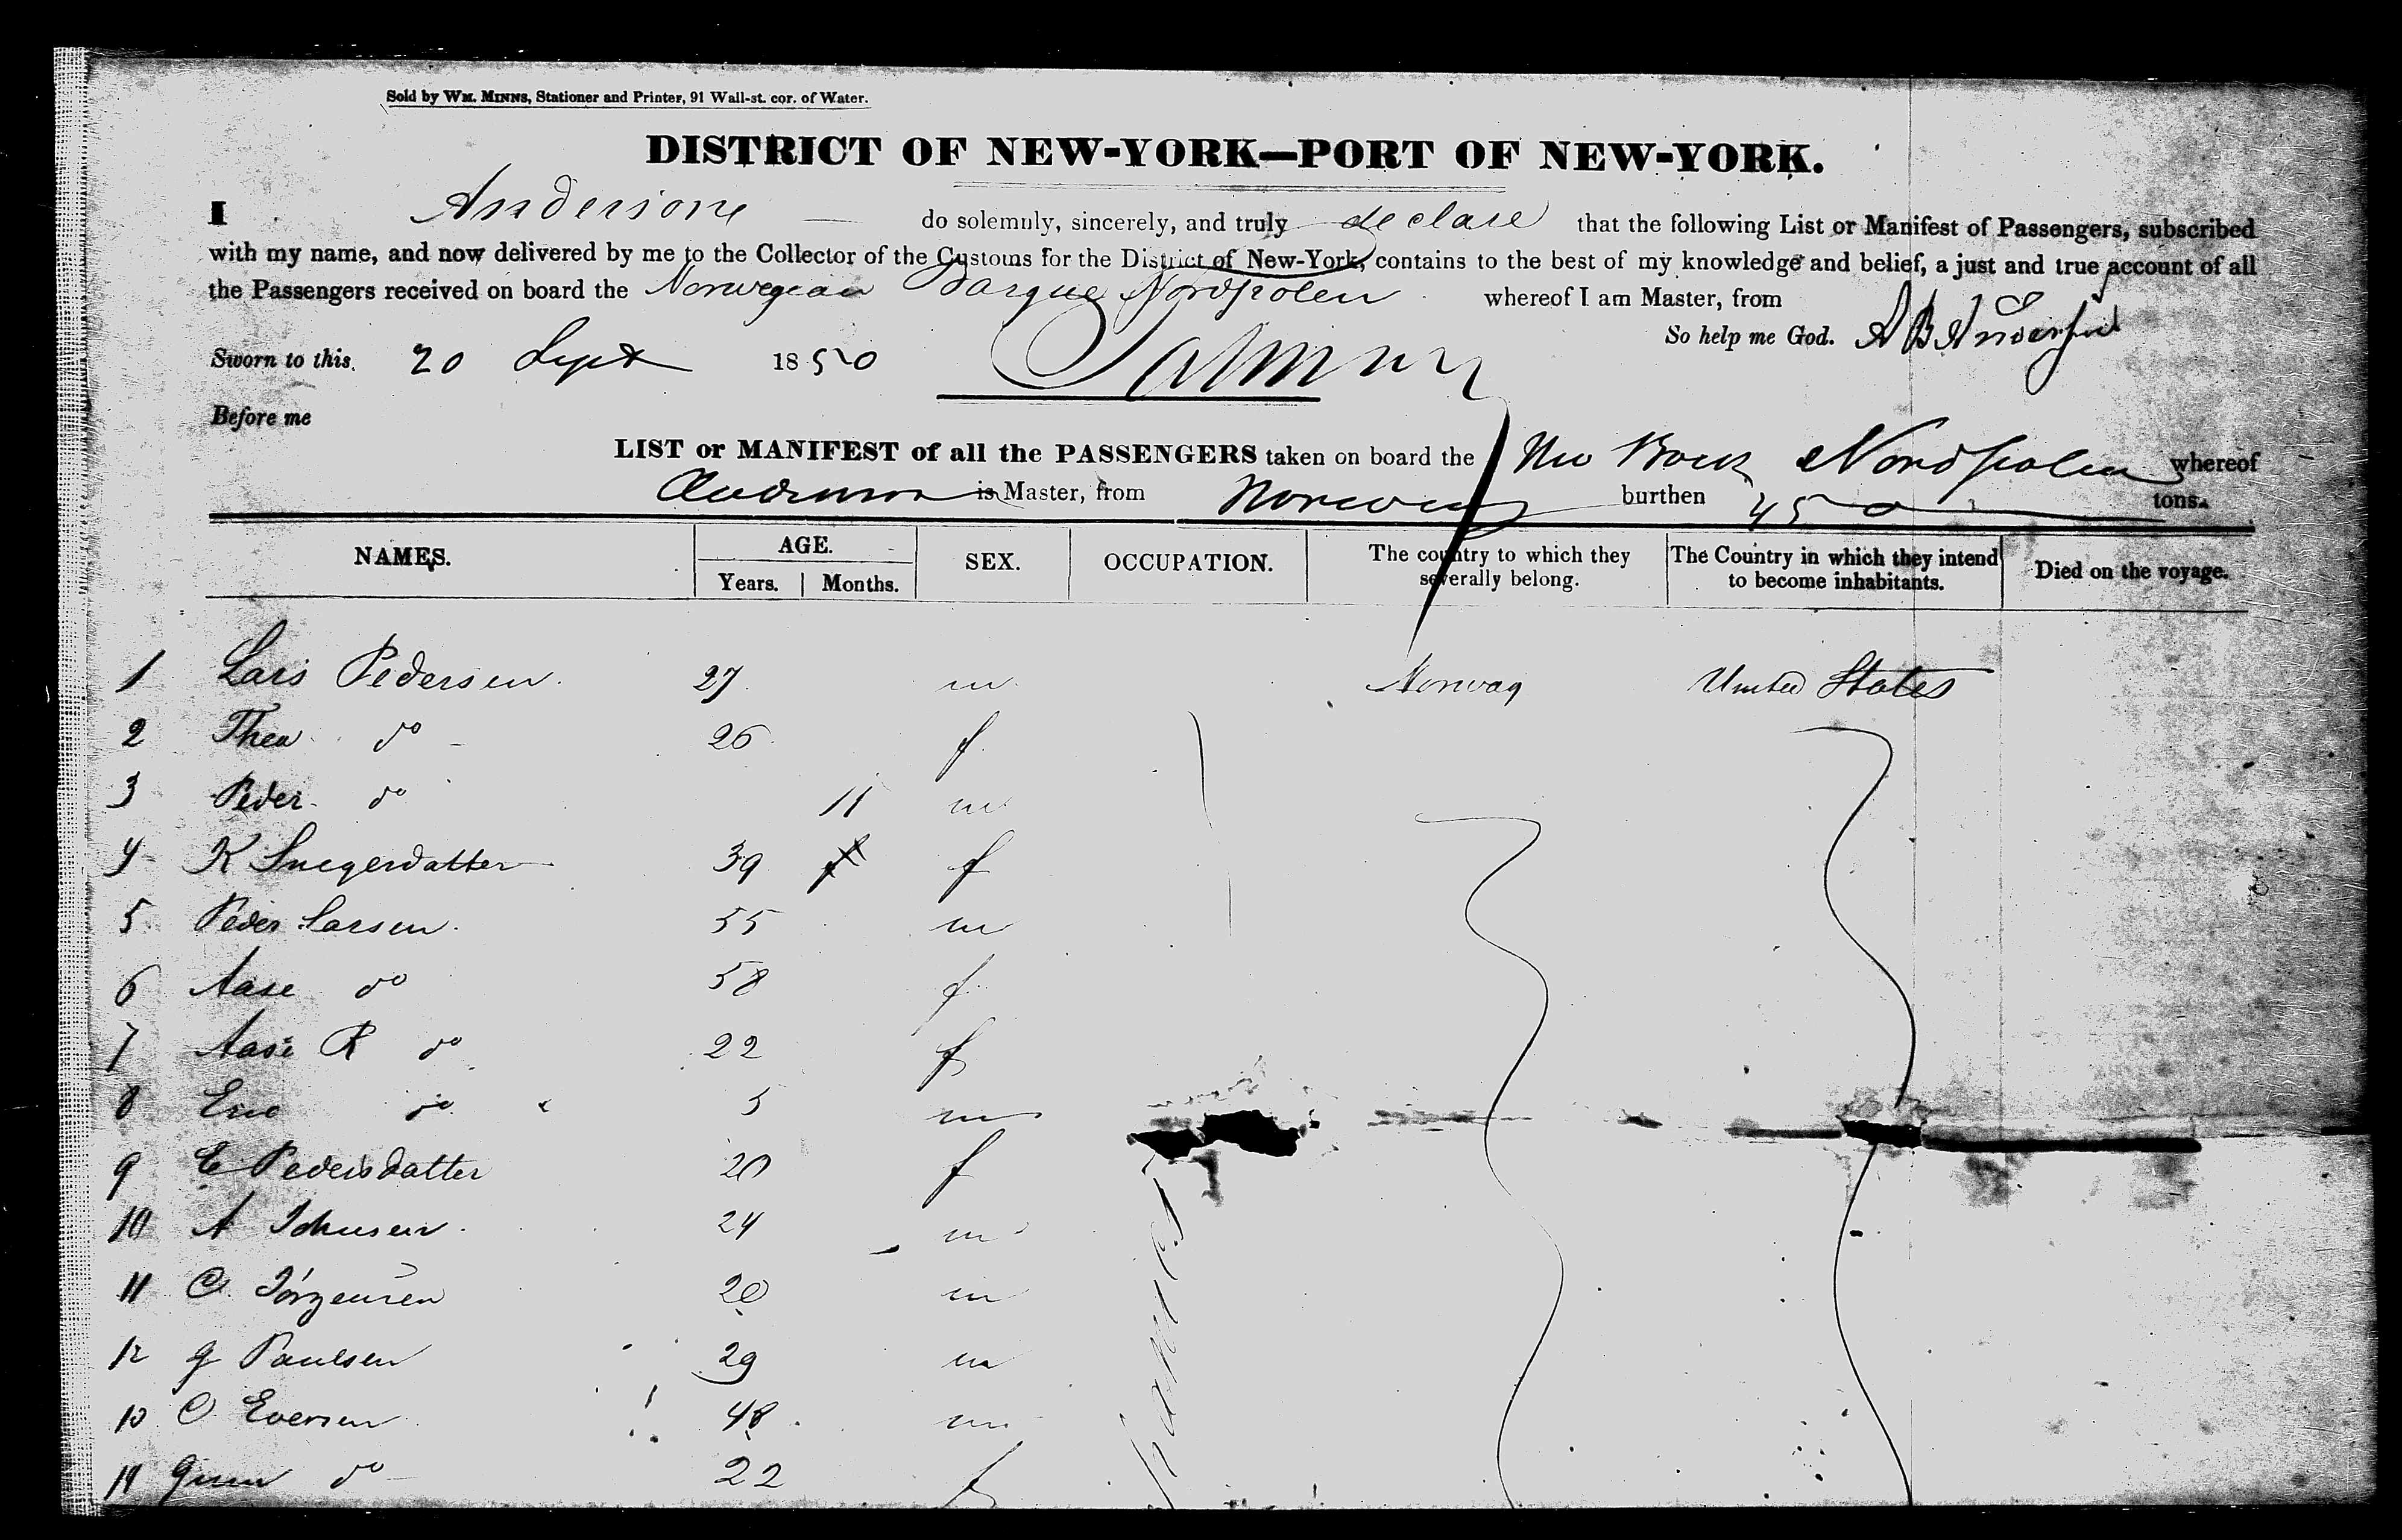 Sold by WM. MINNS, Stationer and Printer, 91 Wall-st. cor. of Water.
DISTRICT OF NEW-YORK—PORT OF NEW-YORK.
I Andersone do solemnly, sincerely, and truly declare that the following List or Manifest of Passengers, subscribed
with my name, and now delivered by me to the Collector of the Customs for the District of New-York, contains to the best of my knowledge and belief, a just and true account of all
the Passengers received on board the Norwegian Barque Nordpolen whereof I am Master, from
So help me God. A B Andersen
Sworn to this 20 Sept 1850
Before me
LIST or MANIFEST of all the PASSENGERS taken on board the Nordpolen whereof
is Master, from Norway burthen 450 tons.
NAMES. AGE. SEX. OCCUPATION. The country to which they severally belong. The Country in which they intend to become inhabitants. Died on the voyage.
Years. Months.
1 Lars Pedersen 27 m Norway United States
2 Thea do 26 f
3 Peder do 11 m
4 K 39 f
5 Peder Larsen 55 m
6 Aase do 58 f
7 Aase R do 22 f
8 do 5 m
9 E Pedersdatter 20 f
10 A 24 m
11 C. Jörgensen 20 m
12 G Paulsen 29 m
13 C Eversen 48 m
14 do 22 f